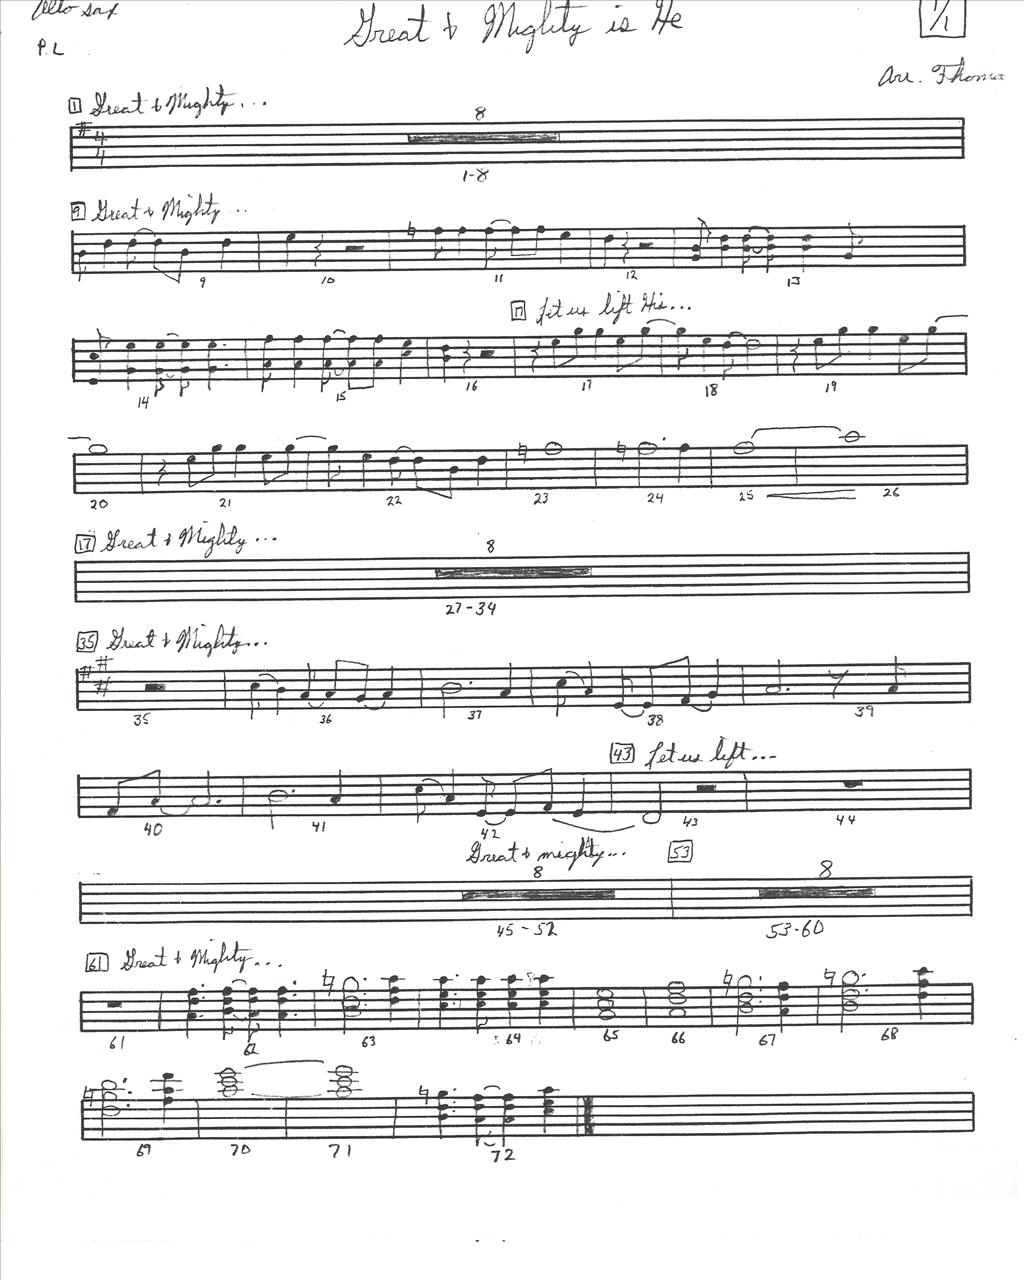 Alto sax
Great & Mighty is He
1/1
P. L
Arr. Thomas
1 Great & Mighty...
8
4
4
1-8
9 Great & Mighty...
9 10 11 12 13
17 Let us lift His...
14 15 16 17 18 19
20 21 22 23 24 25 26
17 Great & Mighty...
8
27-34
35 Great & Mighty...
35 36 37 38 39
43 Let us lift...
40 41 42 43 44
Great & mighty... 53
8 8
45-52 53-60
61 Great & Mighty...
61 62 63 64 65 66 67 68
69 70 71 72